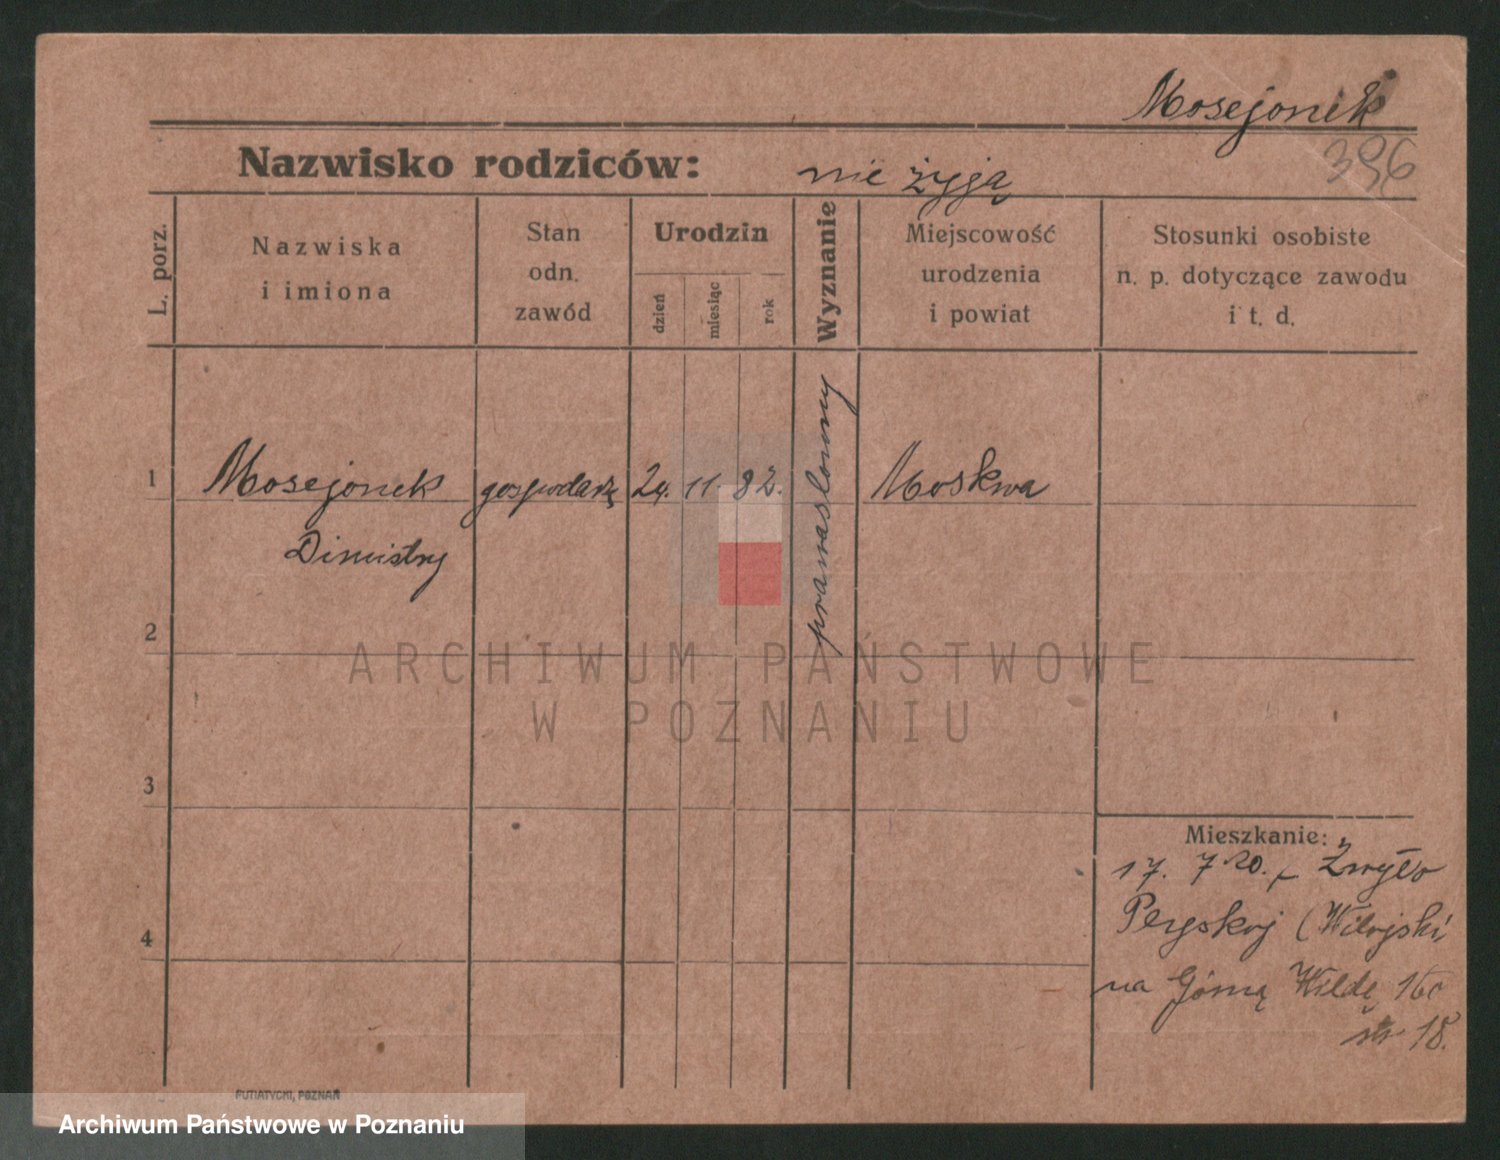 Mosejonek
396
Nazwisko rodziców: nie żyją
L. porz.
Nazwiska
i imiona
Stan
odn.
zawód
Urodzin
dzień
miesiąc
rok
Wyznanie
Miejscowość
urodzenia
i powiat
Stosunki osobiste
n. p. dotyczące zawodu
i t. d.
1 Mosejonek gospodarz 24. 11. 82. prawasłowny Moskwa
Dimistry
2
3
4
Mieszkanie:
17. 7 20.
(Wilejski
na Górną Wildę 160
18.
PUTIATYCKI, POZNAŃ
ARCHIWUM PAŃSTWOWE
W POZNANIU
Archiwum Państwowe w Poznaniu